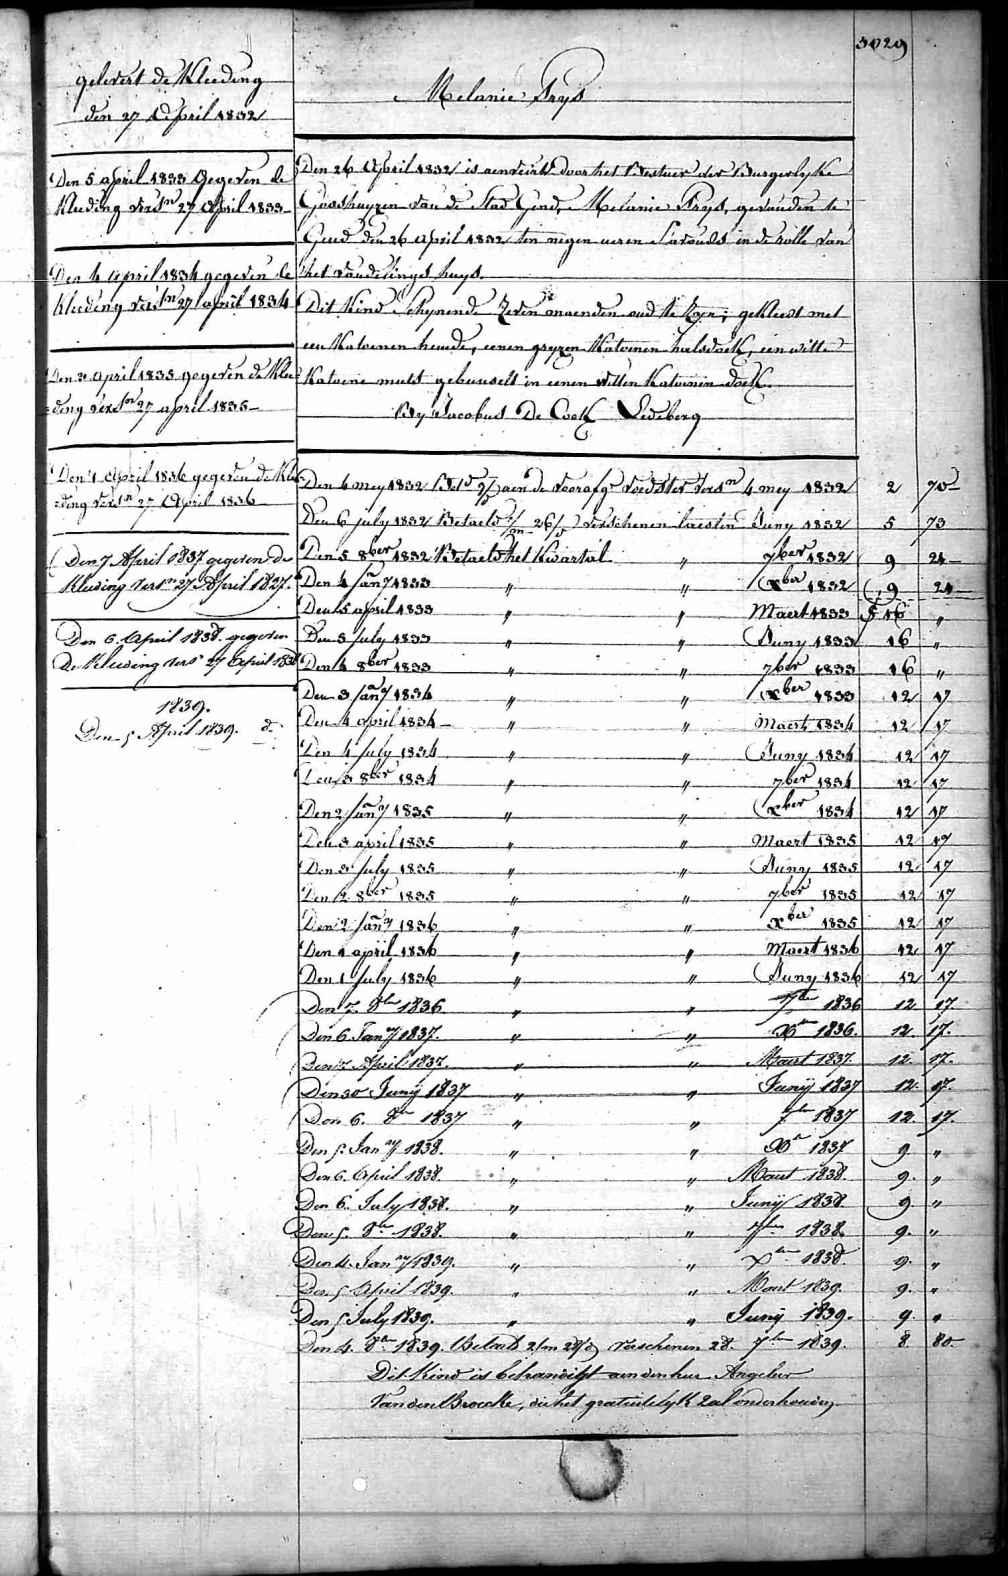 3029
gelevert de Kleeding
den 27 April 1832
Den 5 april 1833 Gegeven de
Kleeding vers.n 27 April 1833
Den 4 april 1834 gegeven de
kleeding vers.n 27 april 1834
Den 3 april 1835 gegeven de Klee
=ding vers.n 27 april 1835
Den 1 April 1836 gegeven de Klee
=ding vers.n 27 April 1836
Den 7 April 1837 gegeven de
Kleeding vers.n 27 April 1837.
Den 6. April 1838. gegeven
De Kleeding vers.n 27 April 1838
1839.
Den 5 April 1839. d.o
Melanie Prys
Den 26 April 1832 is aenveird door het Bestuer der Burgerlyke
Godshuyzen van de Stad Gend, Melanie Prys, gevonden te
Gend den 26 april 1832 ten negen uren s'avonds in de rolle van
het vondelings huys.
Dit Kind schynende zeven maenden oud te zyn; gekleed met
een Katoenen hemde, eenen gryzen Katoenen halsdoek, een witte
Katoene muts gebusselt in eenen witten Katoenen doek.
By Jacobus De Cock Ledeberg
Den 6 mey 1832 Bet.d aen de voorafg.e voedster vers.n 4 mey 1832 2 70
Den 6 july 1832 Betaeld 1/m 26/d verschenen laesten Juny 1832 5 73
Den 5 8ber 1832 Betaeld het Kwartael " 7ber 1832 9 24
Den 4 Jan.y 1833 " " Xber 1832 9 24
Den 5 april 1833 " " Maert 1833 f 16 "
Den 5 july 1833 " " Juny 1833 16 "
Den 4 8ber 1833 " " 7ber 1833 16 "
Den 3 Jan.y 1834 " " Xber 1833 12 17
Den 4 april 1834 " " Maert 1834 12 17
Den 4 july 1834 " " Juny 1834 12 17
Den 3 8ber 1834 " " 7ber 1834 12 17
Den 2 Jan.y 1835 " " Xber 1834 12 17
Den 3 april 1835 " " Maert 1835 12 17
Den 3 july 1835 " " Juny 1835 12 17
Den 2 8ber 1835 " " 7ber 1835 12 17
Den 2 Jan.y 1836 " " Xber 1835 12 17
Den 1 april 1836 " " Maert 1836 12 17
Den 1 july 1836 " " Juny 1836 12 17
Den 7. 8bre 1836 " " 7bre 1836 12 17.
Den 6 Jan.y 1837. " " Xre 1836. 12. 17.
Den 7 April 1837. " " Maert 1837. 12. 17.
Den 30 Junij 1837 " " Junij 1837 12. 17.
Den 6. 8re 1837 " " 7bre 1837 12. 17.
Den 5. Jan.y 1838. " " Xre 1837 9 "
Den 6. April 1838. " " Maert 1838. 9. "
Den 6. July 1838. " " Junij 1838. 9. "
Den 5. 8bre 1838. " " 7bre 1838. 9. "
Den 4. Jan.y 1839. " " Xbre 1838. 9. "
Den 5 April 1839. " " Maert 1839. 9. "
Den 5 July 1839. " " Junij 1839. 9. "
Den 4. 8re 1839. Betaeld 2/m 28/d verschenen 28. 7bre 1839. 8 80
Dit Kind is behandigt aen den heer Angelus
Van den Broecke, die het gratuitelyk zal onderhouden